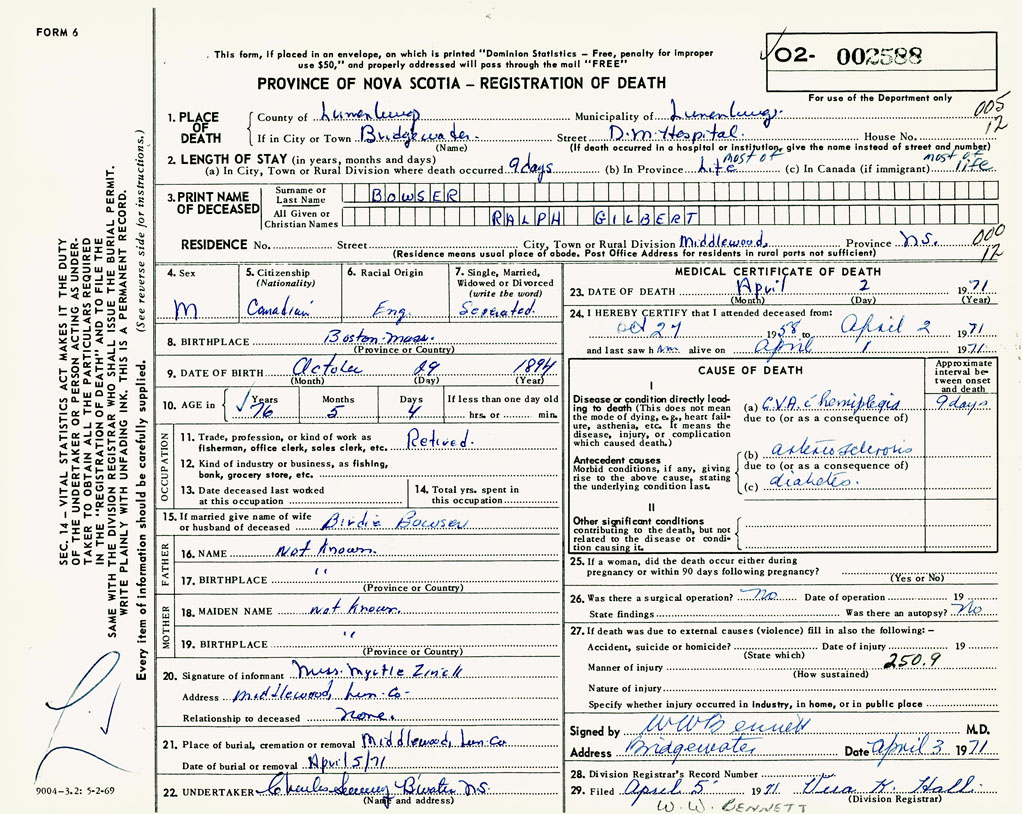 FORM 6
This form, if placed in an envelope, on which is printed "Dominion Statistics – Free, penalty for improper
use $50," and properly addressed will pass through the mail "FREE"
PROVINCE OF NOVA SCOTIA – REGISTRATION OF DEATH
O2- 002588
For use of the Department only
005
12
1. PLACE OF DEATH
County of Lunenburg Municipality of Lunenburg.
If in City or Town Bridgewater. Street D.M. Hospital. House No.
(Name) (If death occurred in a hospital or institution, give the name instead of street and number)
2. LENGTH OF STAY (in years, months and days)
(a) In City, Town or Rural Division where death occurred 9 days (b) In Province most of Life (c) In Canada (if immigrant) most of life
3. PRINT NAME OF DECEASED
Surname or Last Name BOWSER
All Given or Christian Names RALPH GILBERT
RESIDENCE No. Street City, Town or Rural Division Middlewood, Province N.S.
000
12
(Residence means usual place of abode. Post Office Address for residents in rural parts not sufficient)
4. Sex
M
5. Citizenship
(Nationality)
Canadian
6. Racial Origin
Eng.
7. Single, Married,
Widowed or Divorced
(write the word)
Seperated.
8. BIRTHPLACE Boston Mass.
(Province or Country)
9. DATE OF BIRTH October 29 1894
(Month) (Day) (Year)
10. AGE in
Years Months Days If less than one day old
76 5 4 hrs. or min.
OCCUPATION
11. Trade, profession, or kind of work as
fisherman, office clerk, sales clerk, etc. Retired.
12. Kind of industry or business, as fishing,
bank, grocery store, etc.
13. Date deceased last worked
at this occupation
14. Total yrs. spent in
this occupation
15. If married give name of wife
or husband of deceased Birdie Bowser
FATHER
16. NAME Not Known.
17. BIRTHPLACE "
(Province or Country)
MOTHER
18. MAIDEN NAME Not Known.
19. BIRTHPLACE "
(Province or Country)
20. Signature of informant Miss. Myrtle Zinck
Address Middlewood, Lun-Co-
Relationship to deceased None.
21. Place of burial, cremation or removal Middlewood, Lun-Co
Date of burial or removal April 5/71
22. UNDERTAKER Charles B'water N.S.
(Name and address)
MEDICAL CERTIFICATE OF DEATH
23. DATE OF DEATH April 2 1971
(Month) (Day) (Year)
24. I HEREBY CERTIFY that I attended deceased from:
Oct 27 1958 to April 2 1971
and last saw him alive on April 1 1971
CAUSE OF DEATH
Approximate
interval be-
tween onset
and death
I
Disease or condition directly lead-
ing to death (This does not mean
the mode of dying, e.g., heart fail-
ure, asthenia, etc. It means the
disease, injury, or complication
which caused death.)
(a) C.V.A. c hemiplegia 9 days
due to (or as a consequence of)
Antecedent causes
Morbid conditions, if any, giving
rise to the above cause, stating
the underlying condition last.
(b) arteriosclerosis
due to (or as a consequence of)
(c) diabetes.
II
Other significant conditions
contributing to the death, but not
related to the disease or condi-
tion causing it.
25. If a woman, did the death occur either during
pregnancy or within 90 days following pregnancy?
(Yes or No)
26. Was there a surgical operation? No Date of operation 19
State findings Was there an autopsy? No
27. If death was due to external causes (violence) fill in also the following: –
Accident, suicide or homicide? Date of injury 19
(State which)
Manner of injury 250.9
(How sustained)
Nature of injury
Specify whether injury occurred in industry, in home, or in public place
Signed by W W Bennett M.D.
Address Bridgewater Date April 3 1971
28. Division Registrar's Record Number
29. Filed April 5 1971 Vera K. Hall.
(Division Registrar)
W. W. BENNETT
SEC. 14 – VITAL STATISTICS ACT MAKES IT THE DUTY
OF THE UNDERTAKER OR PERSON ACTING AS UNDER-
TAKER TO OBTAIN ALL THE PARTICULARS REQUIRED
IN THE "REGISTRATION OF DEATH" AND TO FILE THE
SAME WITH THE DIVISION REGISTRAR WHO SHALL ISSUE THE BURIAL PERMIT.
WRITE PLAINLY WITH UNFADING INK. THIS IS A PERMANENT RECORD.
Every item of information should be carefully supplied. (See reverse side for instructions.)
9004-3.2: 5-2-69